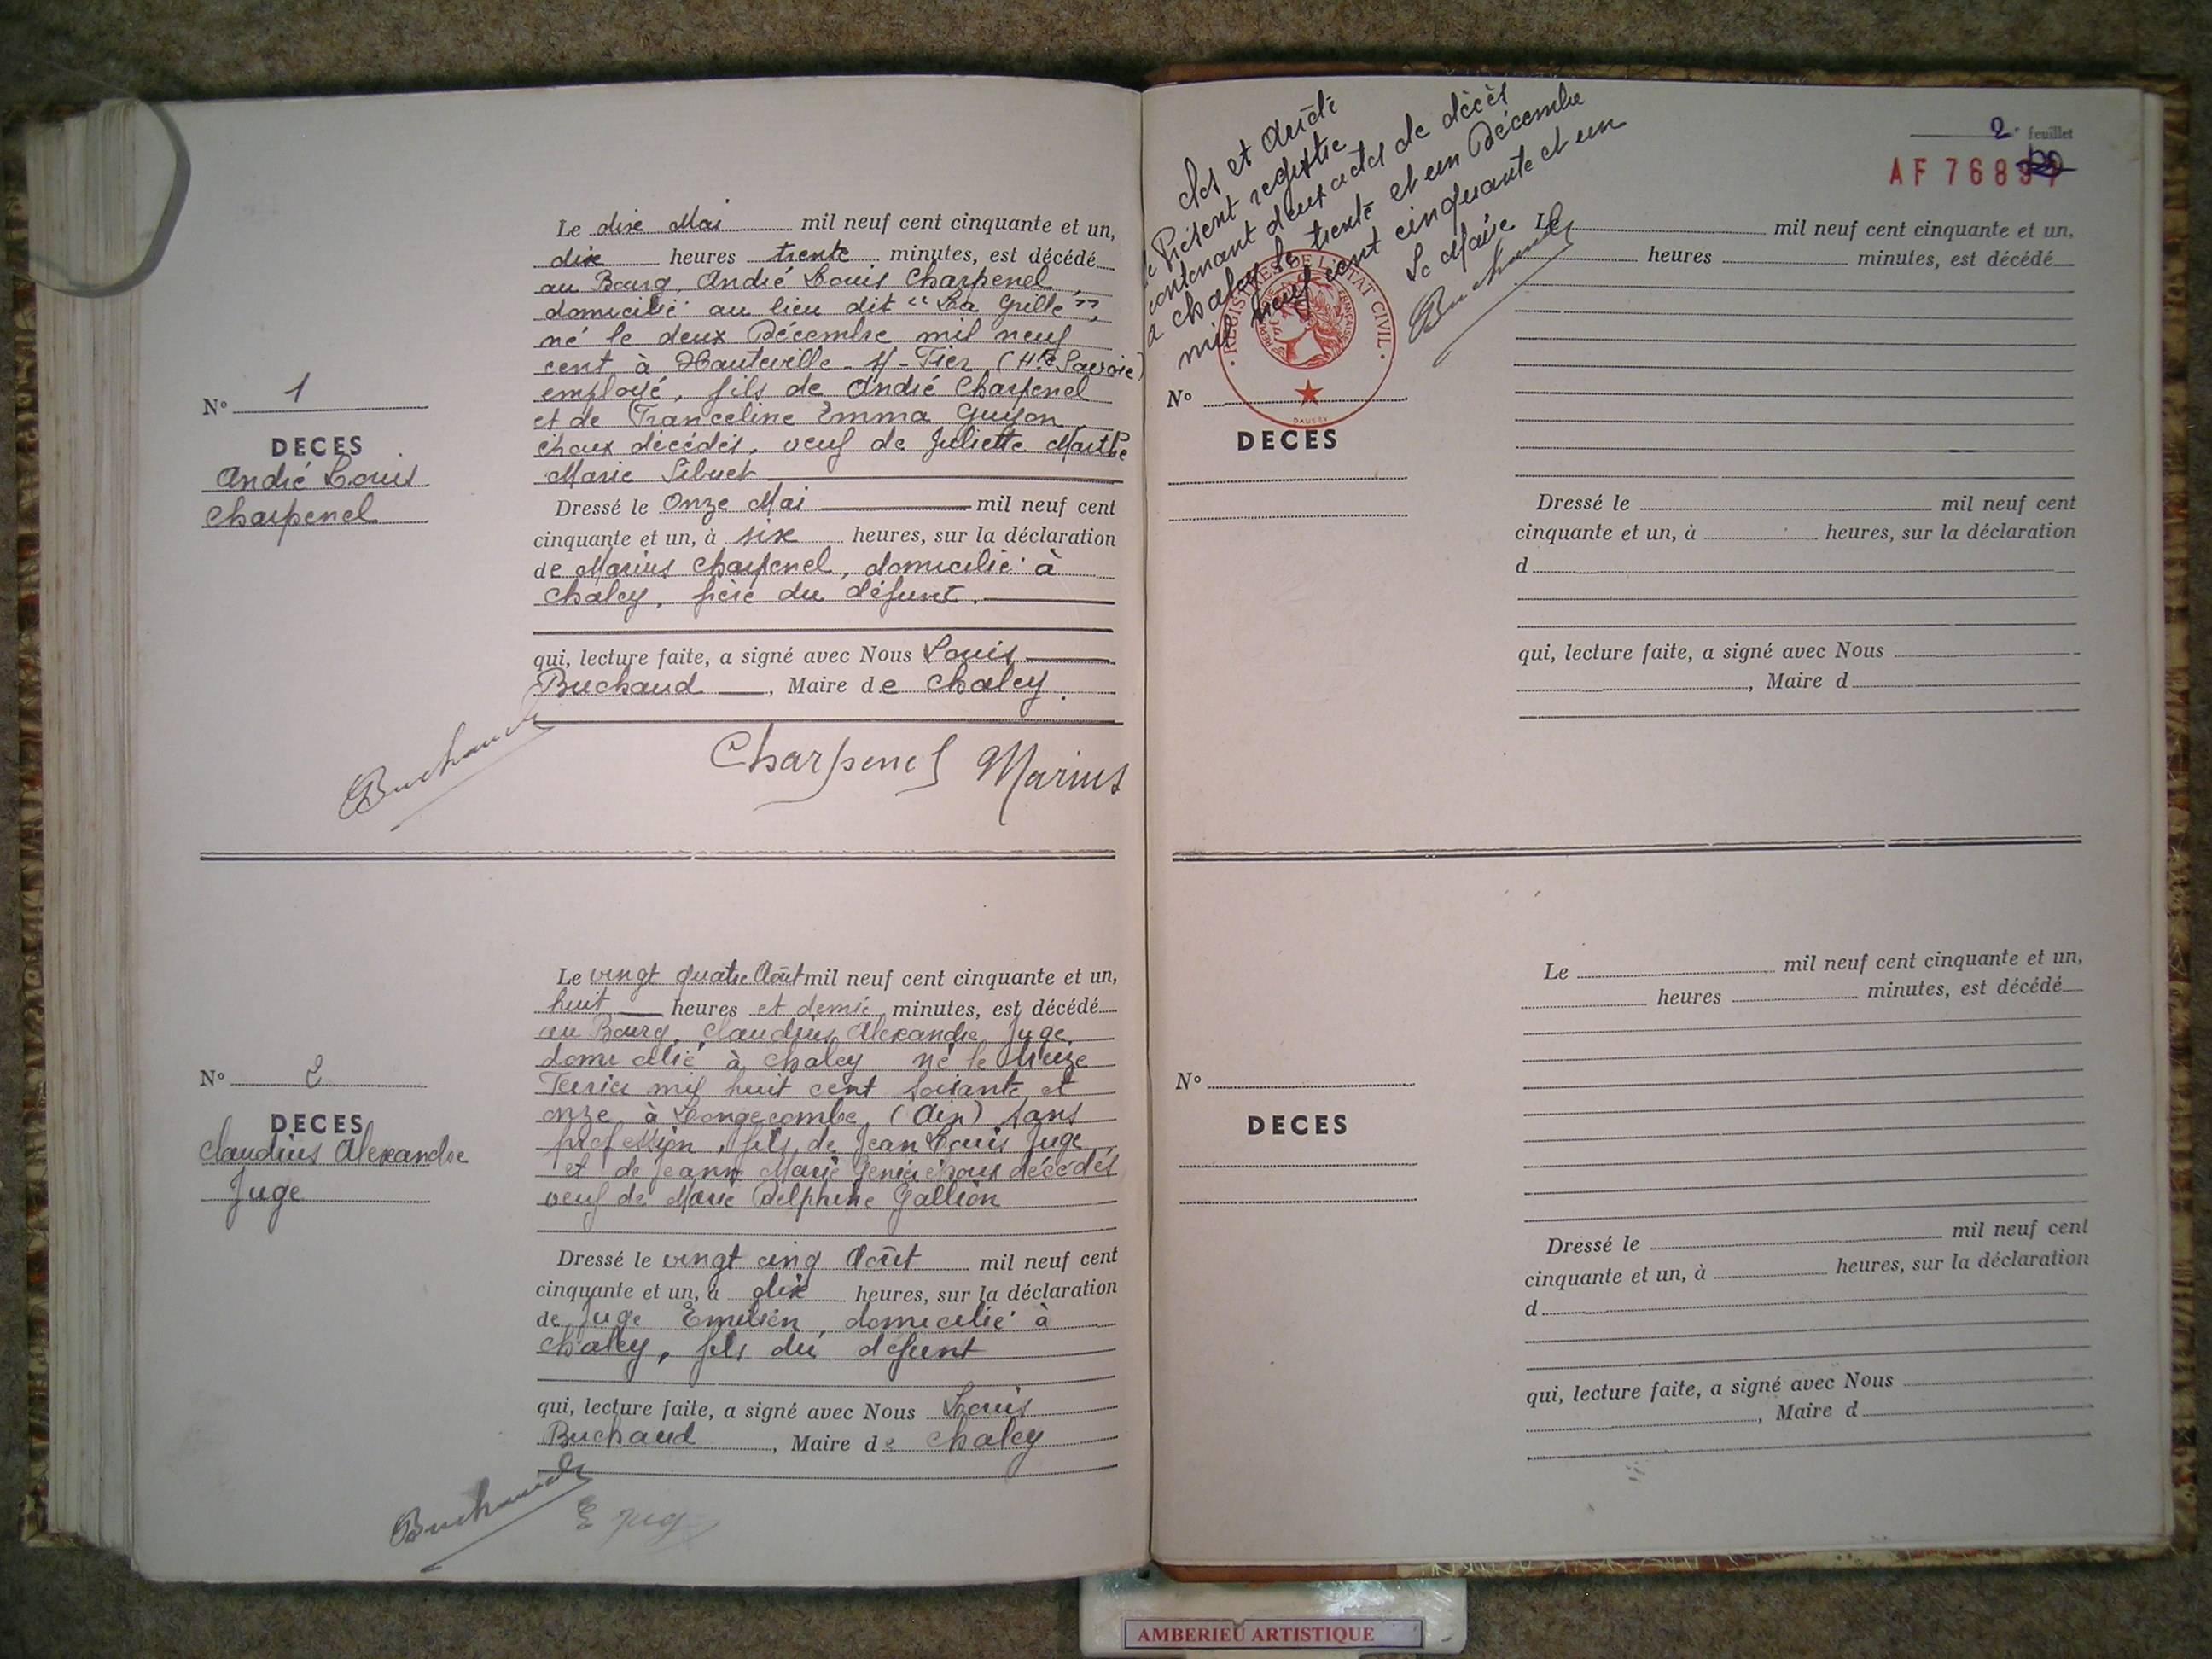 N° 1
DECES
André Louis
Charpenel
Le dix Mai mil neuf cent cinquante et un,
dix heures trente minutes, est décédé
au Bourg, André Louis Charpenel,
domicilié au lieu dit "La Grille",
né le deux Décembre mil neuf
cent à Hauteville-s/-Fier (Hte Savoie)
employé, fils de André Charpenel
et de Franceline Emma Guison,
époux décédés, veuf de Juliette Marthe
Marie Sibuet
Dressé le Onze Mai mil neuf cent
cinquante et un, à six heures, sur la déclaration
de Marius Charpenel, domicilié à
Chaley, frère du défunt.
qui, lecture faite, a signé avec Nous Louis
Buchaud, Maire de Chaley.
Buchaud
Charpenel Marius
N° 2
DECES
Claudius Alexandre
Juge
Le vingt quatre Août mil neuf cent cinquante et un,
huit heures et demie minutes, est décédé
au Bourg, Claudius Alexandre Juge,
domicilié à Chaley né le treize
Février mil huit cent soixante et
onze à Longecombe (Ain) sans
profession, fils de Jean Louis Juge
et de Jeanne Marie époux décédés
veuf de Marie Delphine Gallion
Dressé le vingt cinq Août mil neuf cent
cinquante et un, à dix heures, sur la déclaration
de Juge Emilien, domicilié à
Chaley, fils du défunt
qui, lecture faite, a signé avec Nous Louis
Buchaud, Maire de Chaley
Buchaud
E Juge
Clos et Arrêté
le Présent registre
contenant deux actes de décès
à Chaley le trente et un Décembre
mil neuf cent cinquante et un
Le Maire
Buchaud
REGISTRES DE L'ETAT CIVIL
2e feuillet
AF 768
N°
DECES
Le mil neuf cent cinquante et un,
heures minutes, est décédé
Dressé le mil neuf cent
cinquante et un, à heures, sur la déclaration
d
qui, lecture faite, a signé avec Nous
, Maire d
N°
DECES
Le mil neuf cent cinquante et un,
heures minutes, est décédé
Dressé le mil neuf cent
cinquante et un, à heures, sur la déclaration
d
qui, lecture faite, a signé avec Nous
, Maire d
AMBERIEU ARTISTIQUE